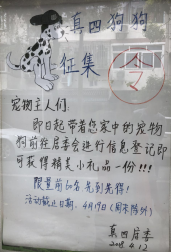 真四狗狗
征集
令
宠物主人们:
即日起带着您家中的宠物
狗前往居委会进行信息登记即
可获得精美小礼品一份!!!
限量前60名先到先得!
活动截止日期:4月19日(周末除外)
真四居委
2018.4.12